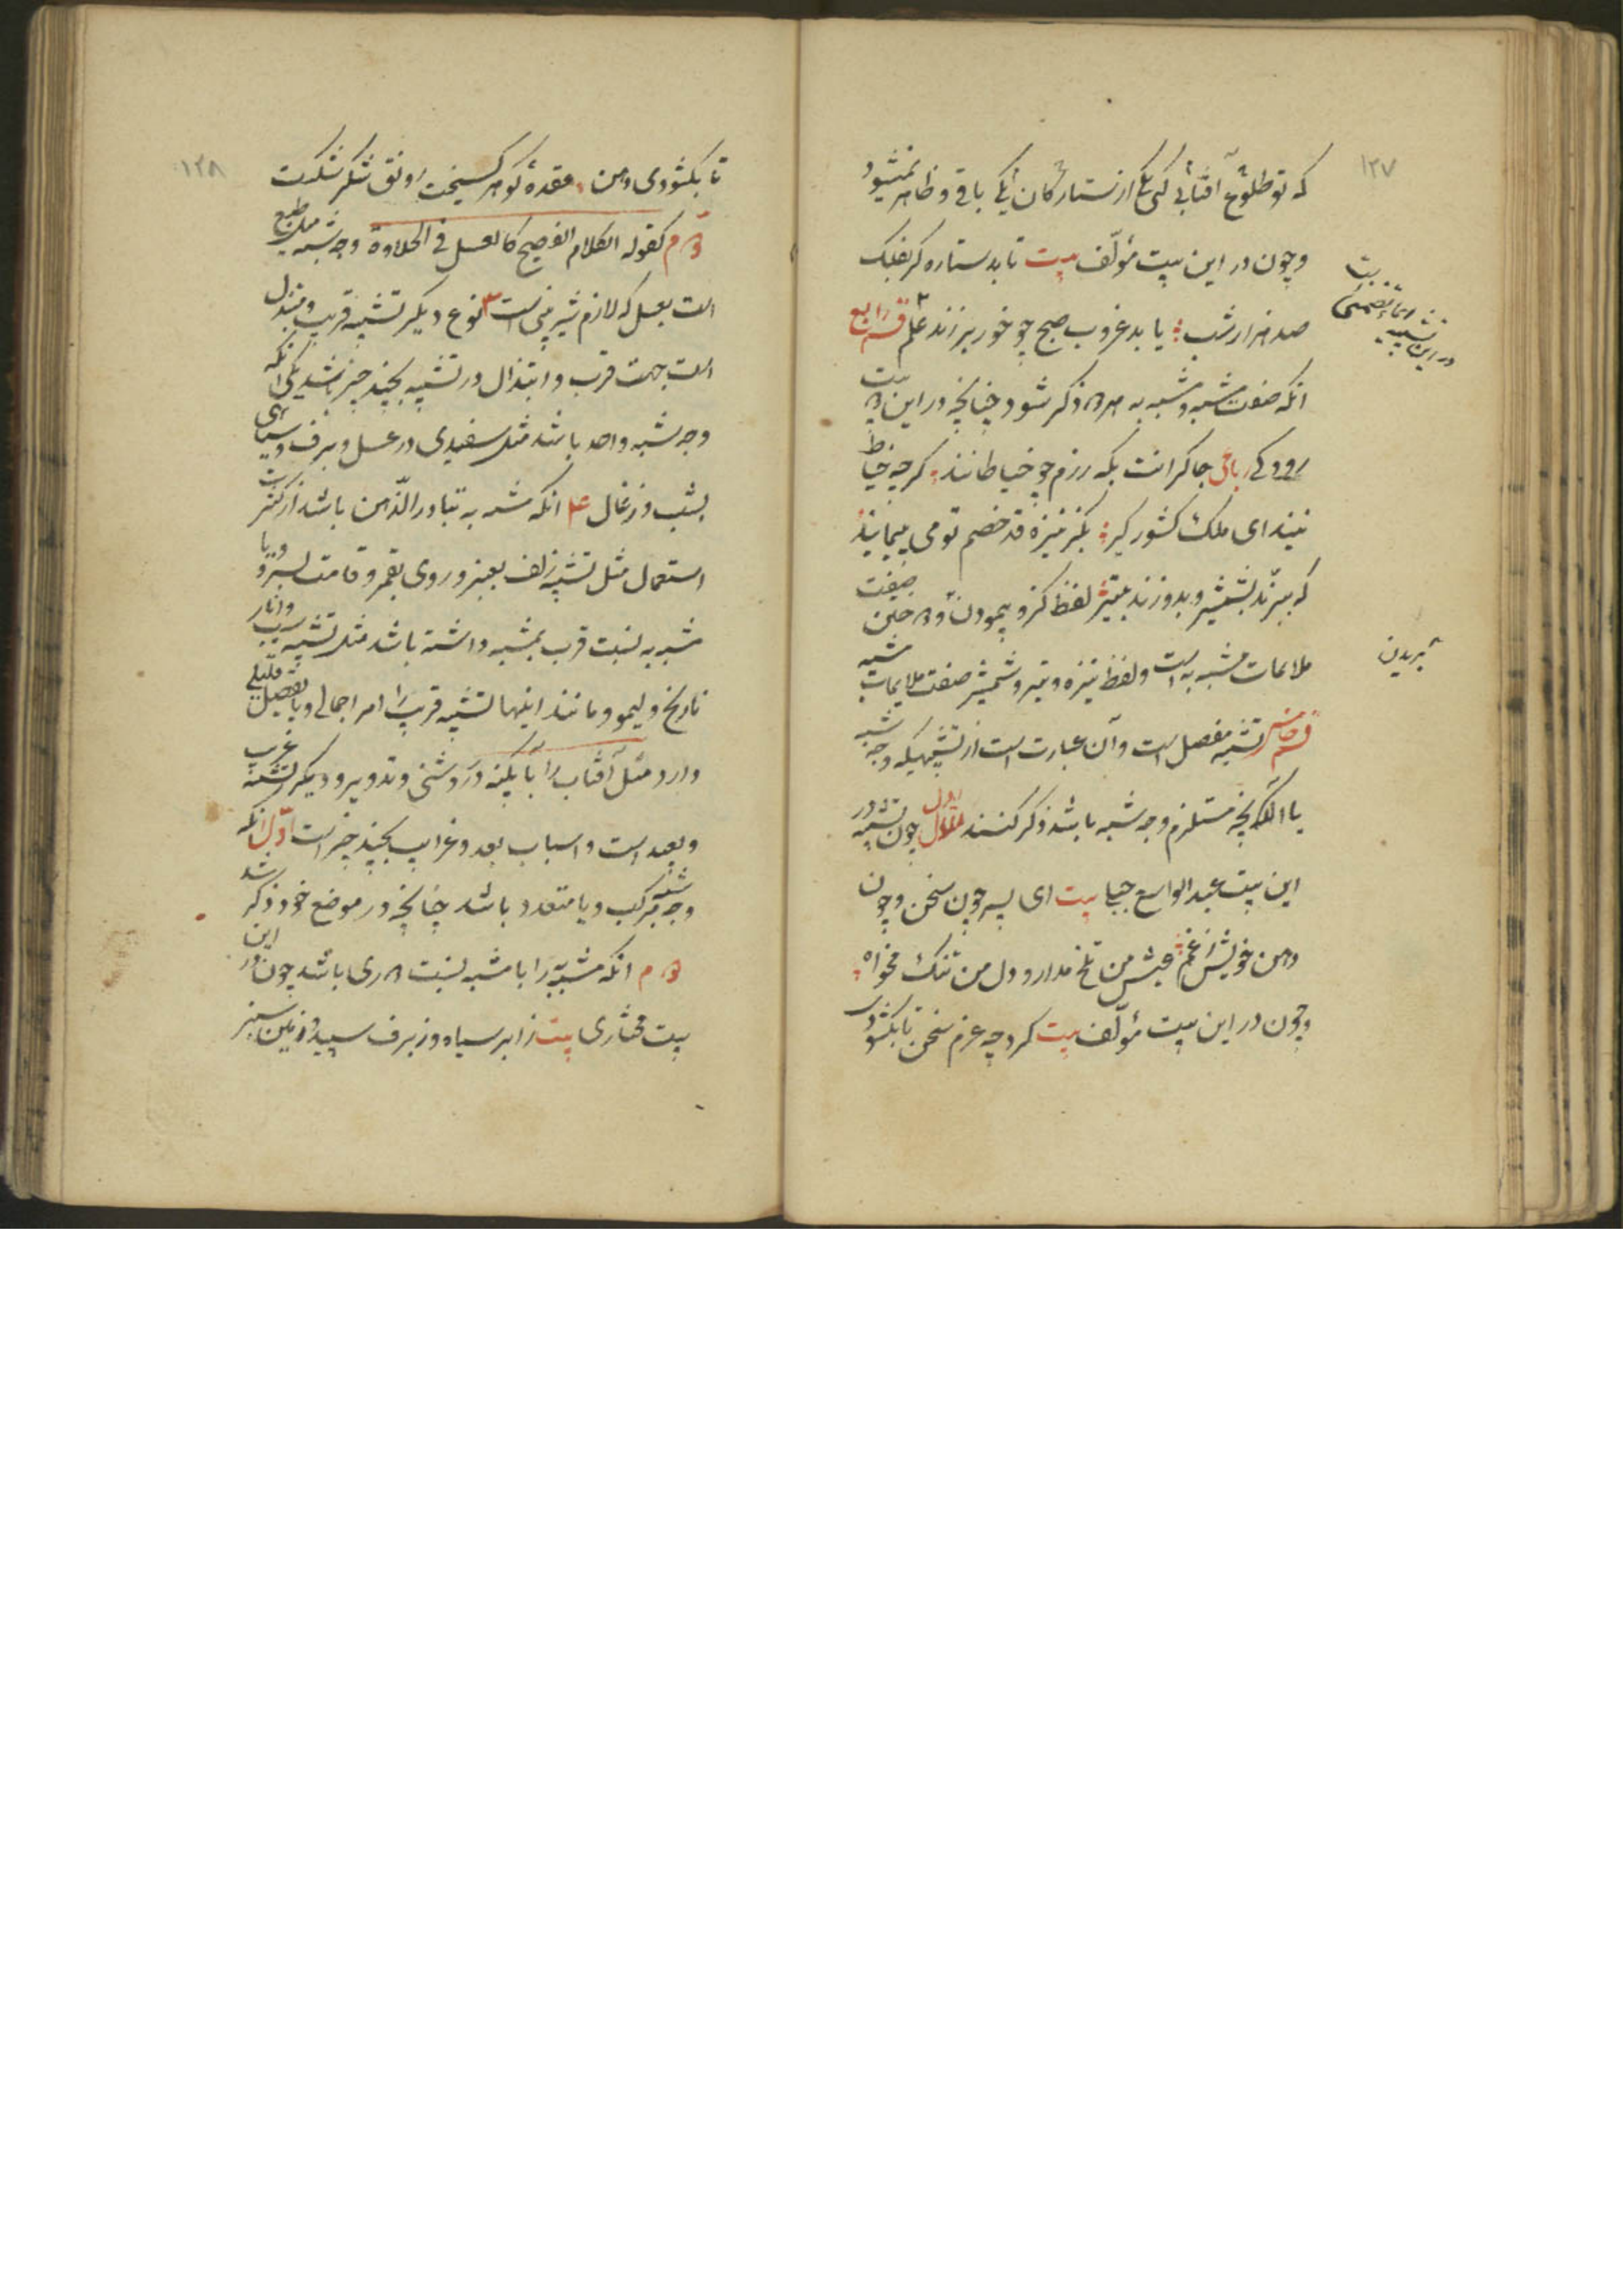 ۱۲۷
که تو طلوع آفتابی کی یکی از ستارگان یکی باقی و ظاهر نمیشود
و چون در این بیت مؤلف بیت تابد ستاره گر بفلک
صد هزار شب یابد غروب صبح چو خور بر زند علم قسم رابع
انکه صفت مشبه و مشبه به هر دو ذکر شود چنانچه در این بیت
رودکی رباعی چاکرانت بگه رزم چو خیاطانند گرچه خیاط
نیند ای ملک کشور گیر بگز نیزه قد خصم تو می پیمایند
که ببرند بشمشیر و بدوزند بتیر لفظ گز و پیمودن و دوختن صفت
ملایمات مشبه به است و لفظ نیزه و تیر و شمشیر صفت ملایمات مشبه
قسم خامس تشبیه مفصل است و آن عبارت است از تشبیهیکه وجه شبه
یا انکه آنچه مستلزم وجه شبه باشد ذکر کنند اول چون تشبیه در
این بیت عبد الواسع جبلی بیت ای پسر چون سخن و چون
دهن خویش ز غم عیش من تلخ مدار و دل من تنگ مخواه
و چون در این بیت مؤلف بیت کرد چه عزم سخن تا بگشود
در این تشبیه
بیت
ببریدن
۱۲۸
تا بگشودی دهن عقده گوهر گسیخت رونق شکر شکست
دوم کقوله الکلام الفصیح کالعسل فی الحلاوة وجه شبه میل طبع
است بعسل که لازم شیرینی است ۳ نوع دیگر تشبیه قریب و مبتذل
است جهت قرب و ابتذال در تشبیه بچند چیز باشد یکی انکه
وجه شبه واحد باشد مثل سفیدی در عسل و برف و سیاهی
بشب و زغال ۴ انکه مشبه به تبادر الذهن باشد از کثرت
استعمال مثل تشبیه زلف بعنبر و روی بقمر و قامت بسرو و یا
مشبه به نسبت قرب بمشبه داشته باشد مثل تشبیه سیب و انار
نارنج و لیمو و مانند اینها تشبیه قریب را امر اجمالی و یا تفصیل قلیلی
دارد مثل آفتاب را با آیینه در روشنی و تدویر و دیگر تشبیه غریب
و بعید است و اسباب بعد و غرایب بچند چیز است اول انکه
وجه شبه مرکب و یا متعدد باشد چنانچه در موضع خود ذکر شد
دوم انکه مشبه به را با مشبه نسبت دوری باشد چون در این
بیت مختاری بیت ز ابر سیاه و ز برف سپید و زمین سبز